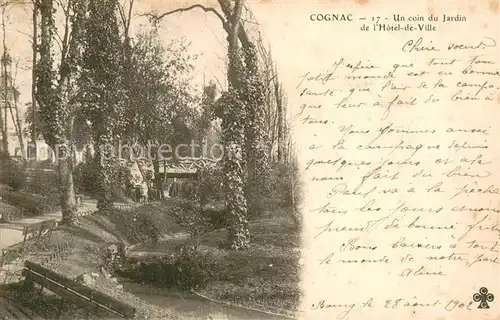 COGNAC — 17 - Un coin du Jardin
de l'Hôtel-de-Ville
Chère sœur
J'espère que tout ton
petit monde est en bonne
santé que l'air de la camp.
que leur a fait du bien à
tous.
Nous sommes aussi
à la campagne depuis
quelques jours et cela
nous fait du bien
Paul va à la pêche
tous les jours
prend de bonne friture
Bons baisers à tout
le monde de notre part
Aline
Bourg le 28 août 1902
delcampe.net